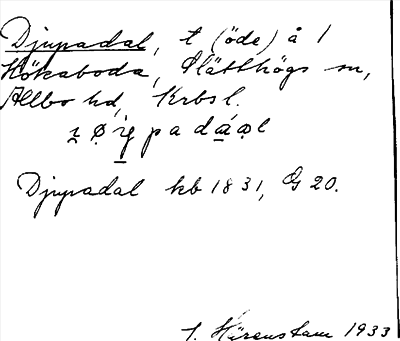 Djupadal, t (öde) å 1
Hökaboda, Slätthögs sn,
Allbo hd, Krbs l.
Djupadal kb 1831, G 20.
1933